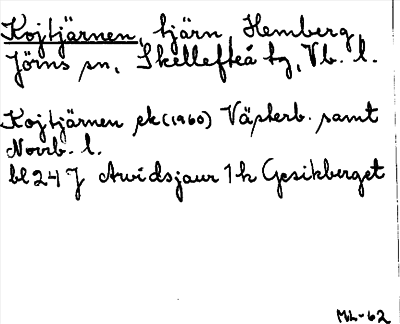 Kojtjärnen, tjärn, Hemberg,
Jörns sn, Skellefteå tg, Vb. l.
Kojtjärnen ek (1960) Västerb. samt
Norrb. l.
bl 24 J Arvidsjaur 1 h Gesikberget
ML-62